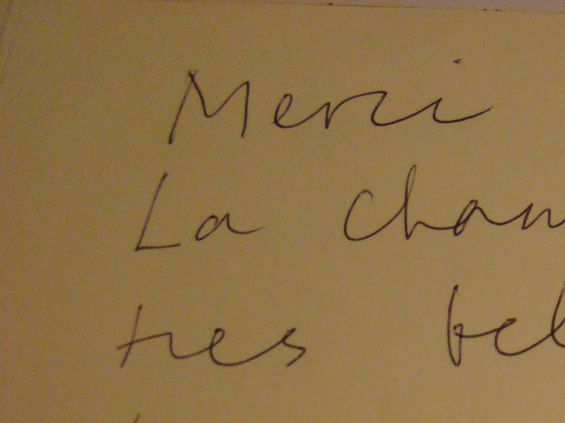 Merci
La cham
tres bel